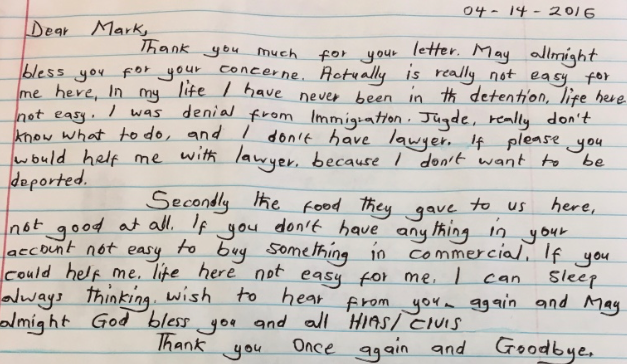 04-14-2016
Dear Mark,
Thank you much for your letter. May allmight
bless you for your concerne. Actually is really not easy for
me here, In my life I have never been in th detention, life here
not easy. I was denial from Immigration. Jugde, really don't
know what to do, and I don't have lawyer. If please you
would helf me with lawyer. because I don't want to be
deported.
Secondly the food they gave to us here,
not good at all. If you don't have anything in your
account not easy to buy something in commercial. If you
could helf me. life here not easy for me. I can sleep
always thinking. wish to hear from you. again and May
almight God bless you and all HIAS/CIVIS
Thank you Once again and Goodbye.